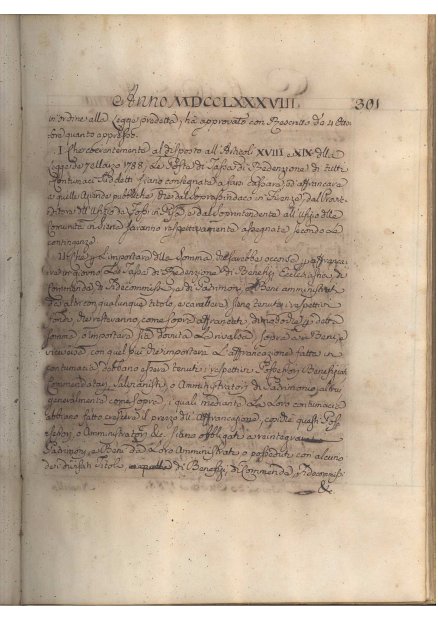 Anno MDCCLXXXVIII. 301
in ordine alla Legge predetta, ha approvato con Rescritto de 4 Otto
bre quanto appresso.
I. Che coerentemente al disposto all'Articoli XVIII e XIX della
Legge de 7 Marzo 1788, Le Poste di Tasse di Redenzione di tutti
Contumaci suddetti siano consegnate a farsi
e quelle Aziende pubbliche che dal Soprasindaco in Firenze, dal Provve
ditore dell'Ufizio de Fossi in Pisa, e dal Soprintendente all'Ufizio delle
Comunità in Siena saranno respettivamente assegnate secondo Le
contingenze.
II. Che per L'importare della Somma che sarebbe occorsa per affranca
re in Le Tasse di Redenzione di Benefizi Ecclesiastici, di
Commenda, di Fidecommisso, di Patrimoni, o Beni amministrati
con qualunque titolo, siano tenuti i respettivi
Fondi, che resteranno come sopra affrancati di modo che per detta
somma o importare sia dovuta La rivalsa sopra Beni, e
viceversa con quel più che importare L'affrancazione fatta in
contumacia debbano essere tenuti i respettivi Possessori, Beneficiati
Commendatari, o Amministratori di Patrimonio, altri
generalmente come sopra, i quali mediante La Loro contumacia
abbiano fatto crescere il prezzo dell'Affrancazione, e questi Pos
sessori, o Amministratori &c. siano obbligati a reintegrare
Patrimoni, e Beni da Loro Amministrati o posseduti con alcuno
de Titoli di Benefizi, di Commenda, Fidecommissi
&c.